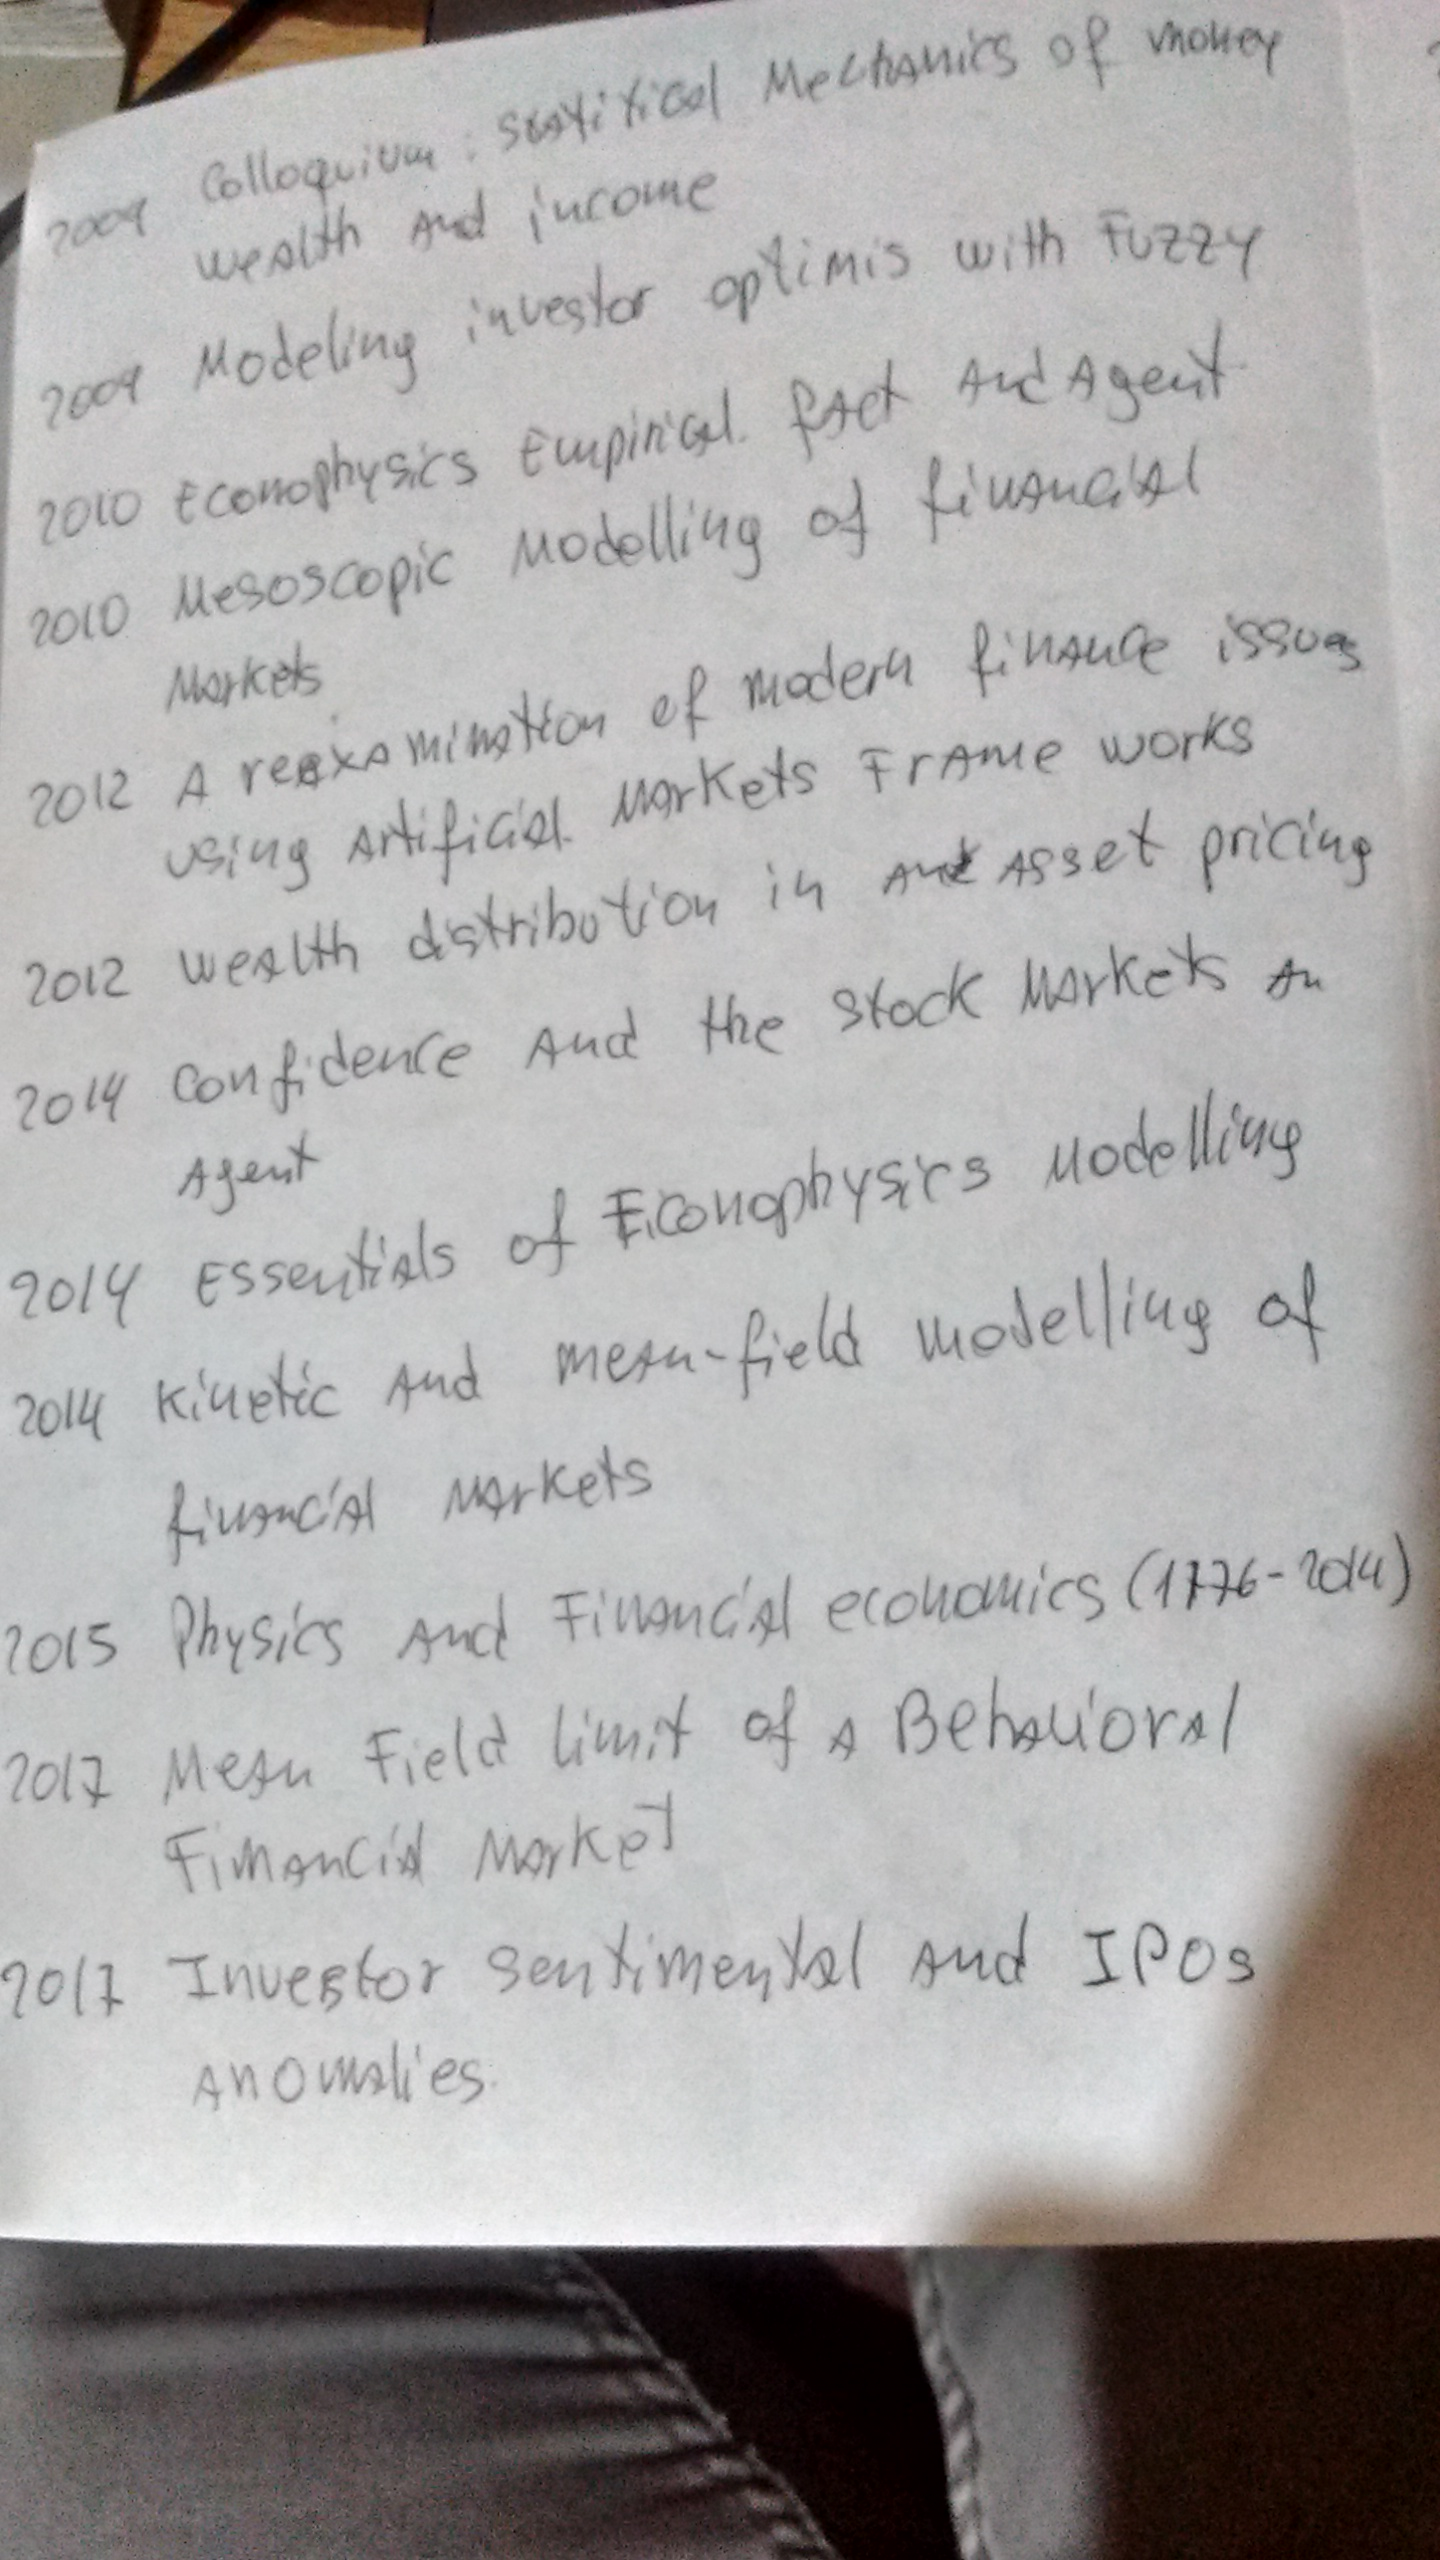 2009 Colloquium: Statitical Mechanics of money
wealth and income
2009 Modeling investor optimis with Fuzzy
2010 Econophysics Empirical fact and Agent
2010 Mesoscopic Modelling of financial
Markets
2012 A reexamination of modern finance issues
using artificial Markets Frame works
2012 wealth distribution in and Asset pricing
2014 confidence and the stock Markets an
Agent
2014 Essentials of Econophysics Modelling
2014 Kinetic and mean-field modelling of
financial Markets
2015 Physics and Financial economics (1776-2014)
2017 Mean Field limit of a Behavioral
Financial Market
2017 Investor Sentimental and IPOs
anomalies.